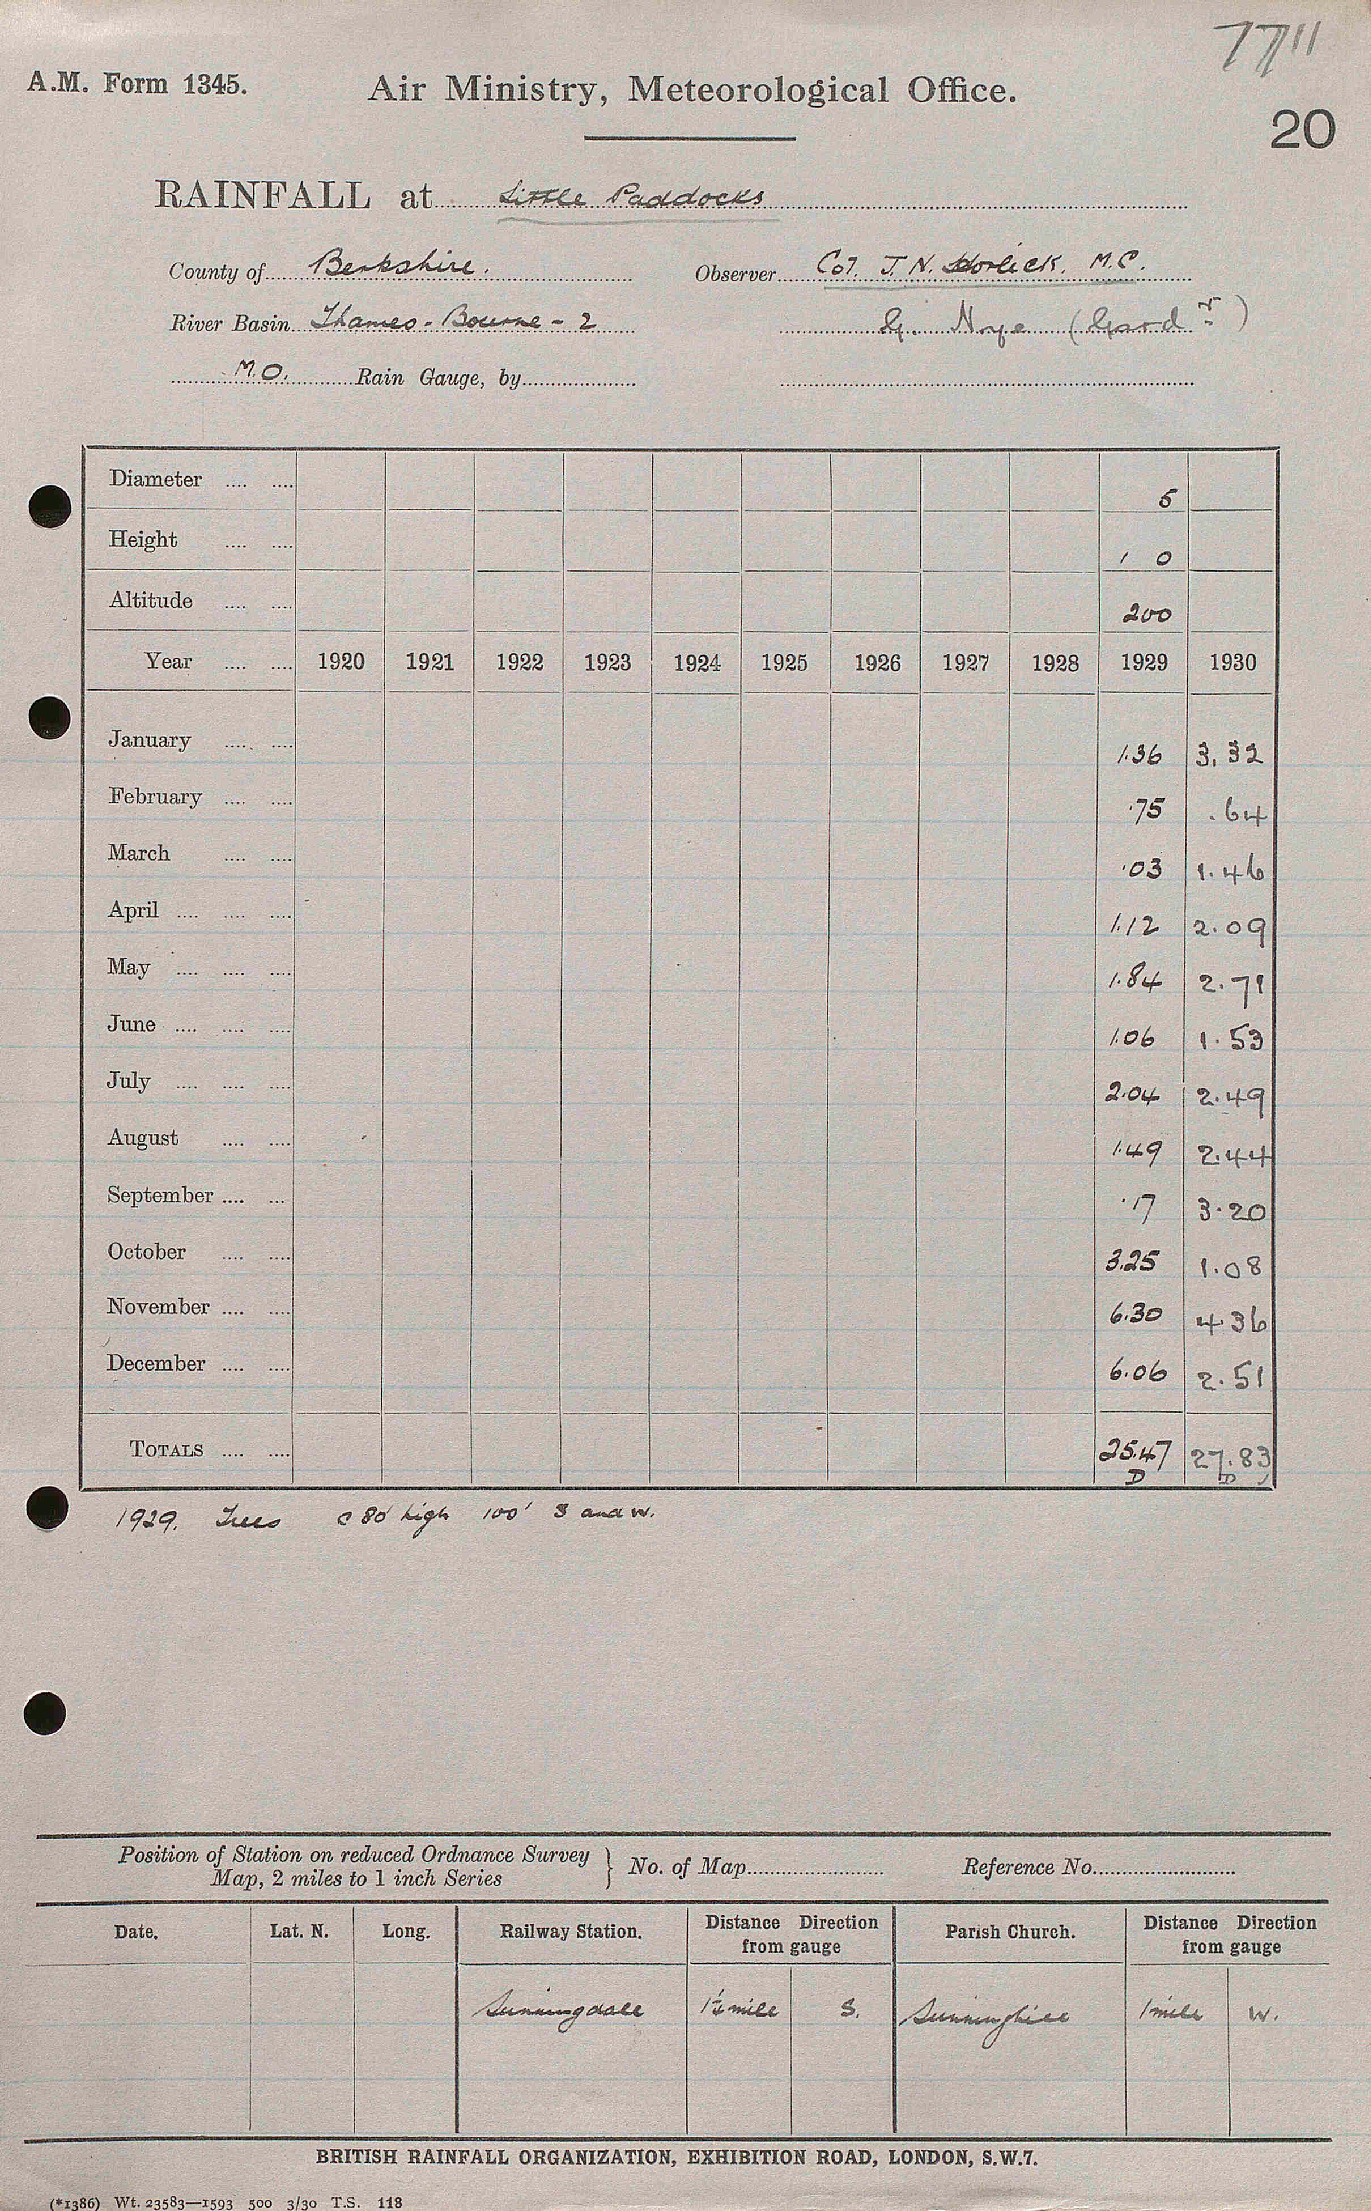 7711
A.M. Form 1345. Air Ministry, Meteorological Office.
20
RAINFALL at Little Paddocks
County of Berkshire. Observer Col. J. N. Horlick. M.C.
River Basin Thames - Bourne - 2 G. Nye (Gardr)
M.O. Rain Gauge, by
Diameter .... .... 5
Height .... .... 1 0
Altitude .... .... 200
Year .... .... 1920 1921 1922 1923 1924 1925 1926 1927 1928 1929 1930
January .... .... 1.36 3.32
February .... .... .75 .64
March .... .... .03 1.46
April .... .... .... 1.12 2.09
May .... .... .... 1.84 2.71
June .... .... .... 1.06 1.53
July .... .... .... 2.04 2.49
August .... .... 1.49 2.44
September .... .... .17 3.20
October .... .... 3.25 1.08
November .... .... 6.30 4.36
December .... .... 6.06 2.51
TOTALS .... .... 25.47 27.83
D D
1929. Trees c 80' high 100' S and W.
Position of Station on reduced Ordnance Survey
Map, 2 miles to 1 inch Series } No. of Map Reference No.
Date. Lat. N. Long. Railway Station. Distance Direction from gauge Parish Church. Distance Direction from gauge
Sunningdale mile S. Sunninghill 1 mile W.
BRITISH RAINFALL ORGANIZATION, EXHIBITION ROAD, LONDON, S.W.7.
(*1386) Wt. 23583—1593 500 3/30 T.S. 118